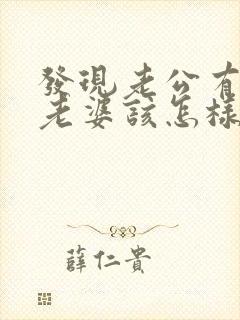 發現老公有
老婆該怎樣
薛仁貴